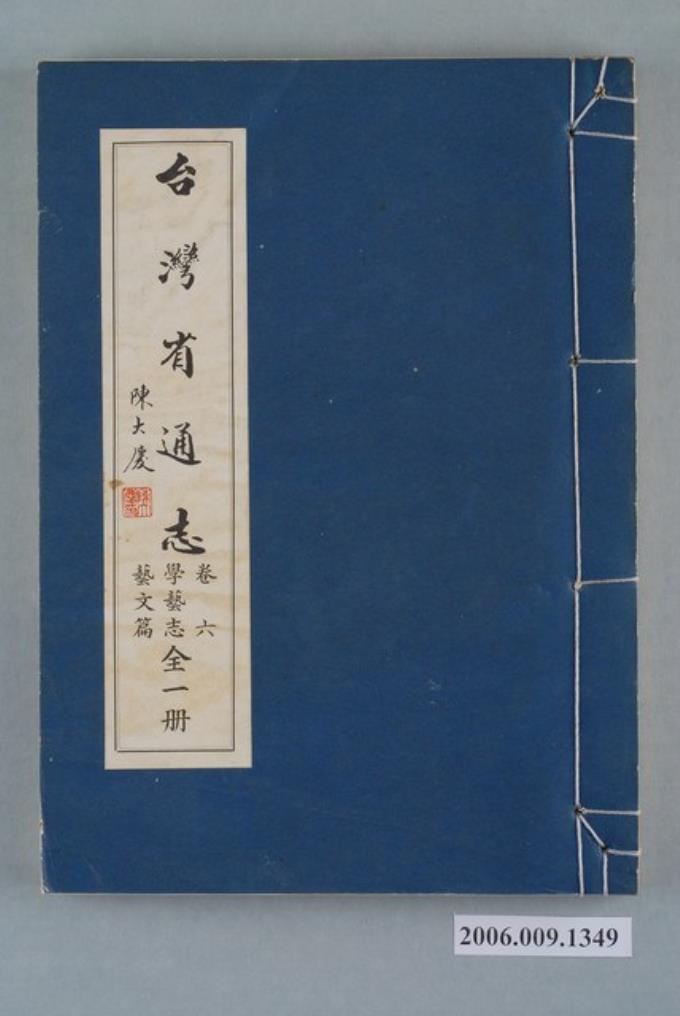 台灣省通志
卷六
學藝志
藝文篇
全一册
陳大慶
2006.009.1349